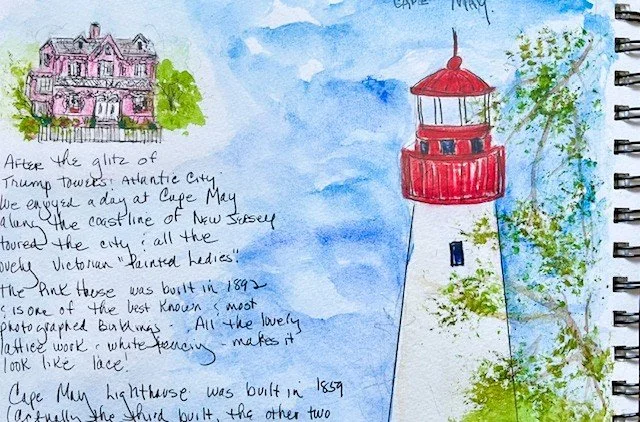 CAPE MAY.
After the glitz of
Trump Towers: Atlantic City.
We enjoyed a day at Cape May
along the coastline of New Jersey
toured the city & all the
ovely Victorian "Painted Ladies".
the Pink House was built in 1892
& is one of the best known & most
photographed buildings - All the lovely
lattice work & white fencing - makes it
look like lace!
Cape May Lighthouse was built in 1859
(actually the third built, the other two